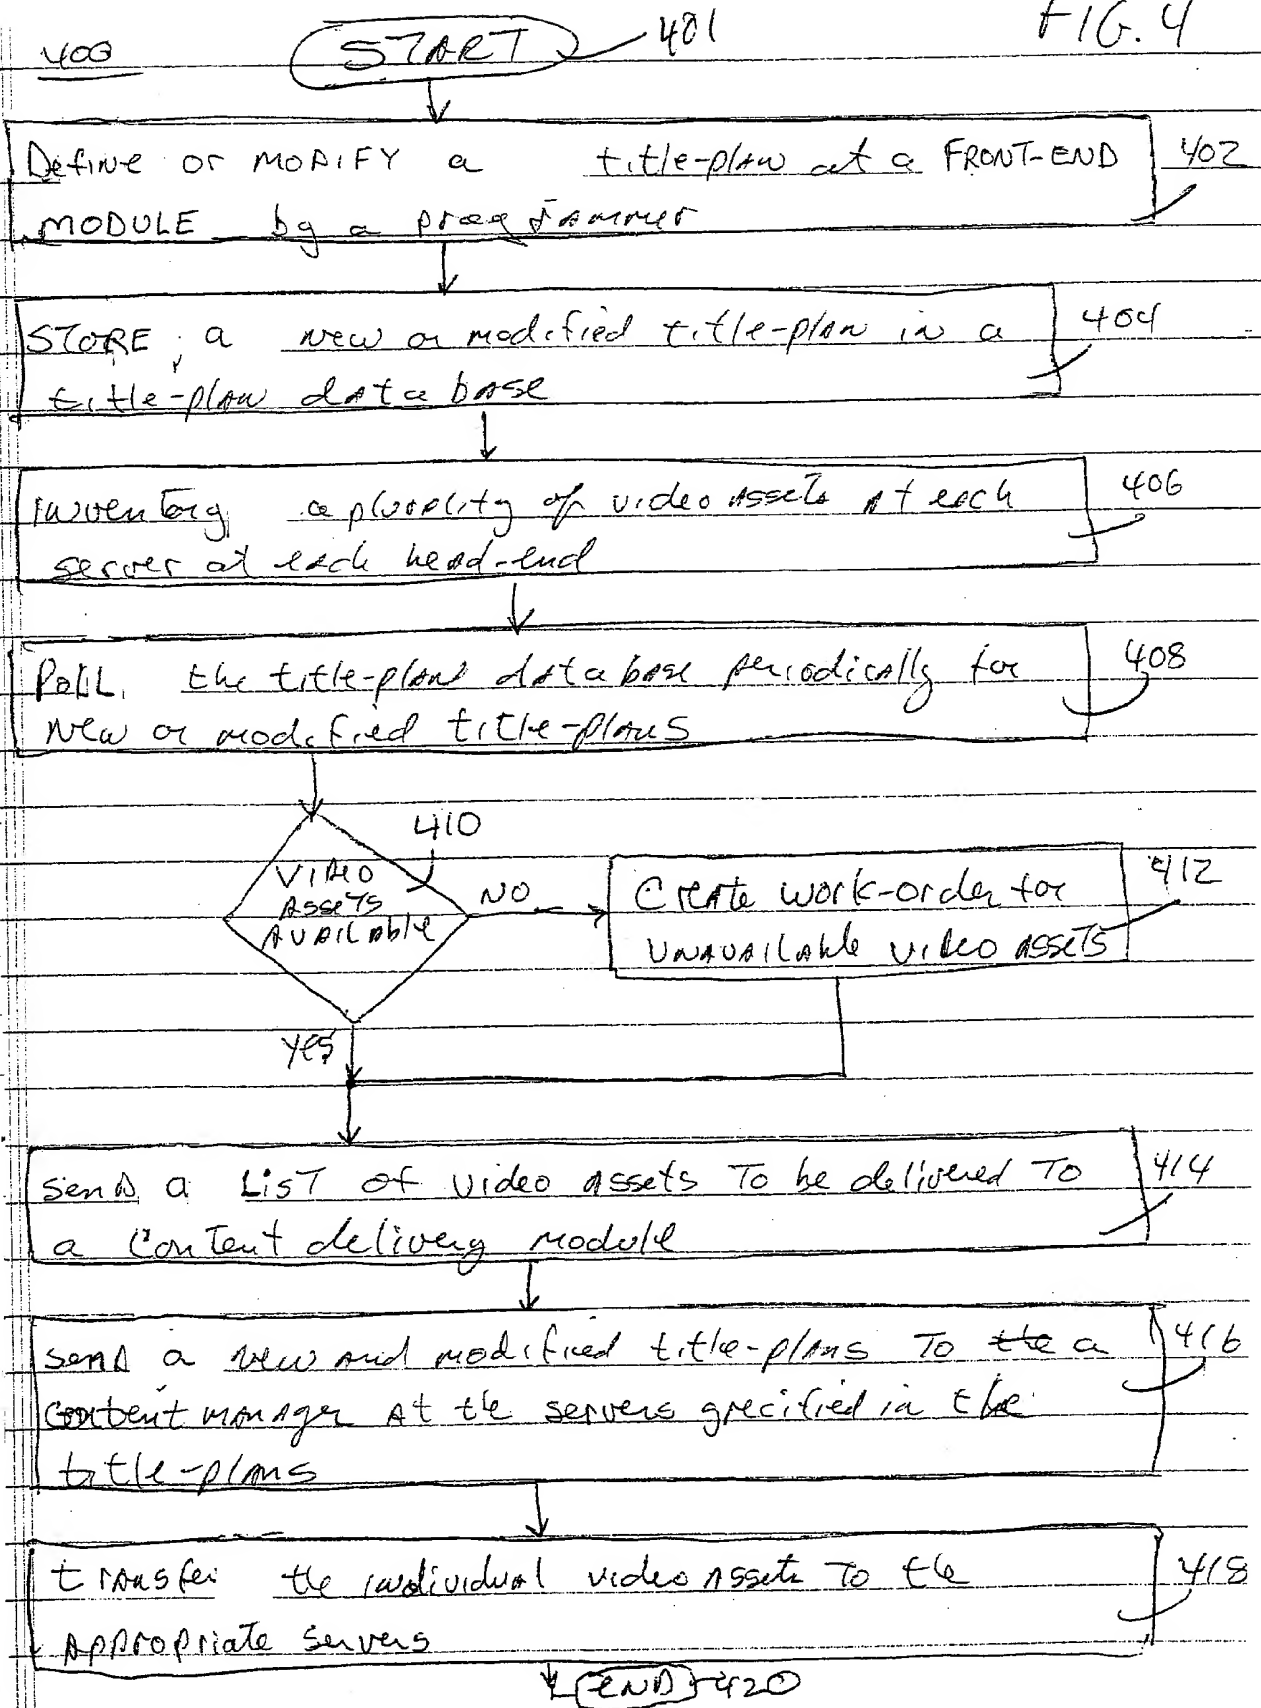 FIG. 4
400
START 401
Define or MODIFY a title-plan at a FRONT-END 402
MODULE by a programmer
STORE, a new or modified title-plan in a 404
title-plan data base
inventory a plurality of video assets at each 406
server at each head-end
Poll the title-plan data base periodically for 408
New or modified title-plans
410
VIDEO
Assets
AVAILAble
NO
Create work-order for 412
UNAVAILABLE video assets
Yes
send a LisT of video assets To be delivered To 414
a Content delivery module
send a new and modified title-plans To the a 416
content manager At the servers specified in the
title-plans
transfer the individual video Assets To the 418
Appropriate servers
END 420